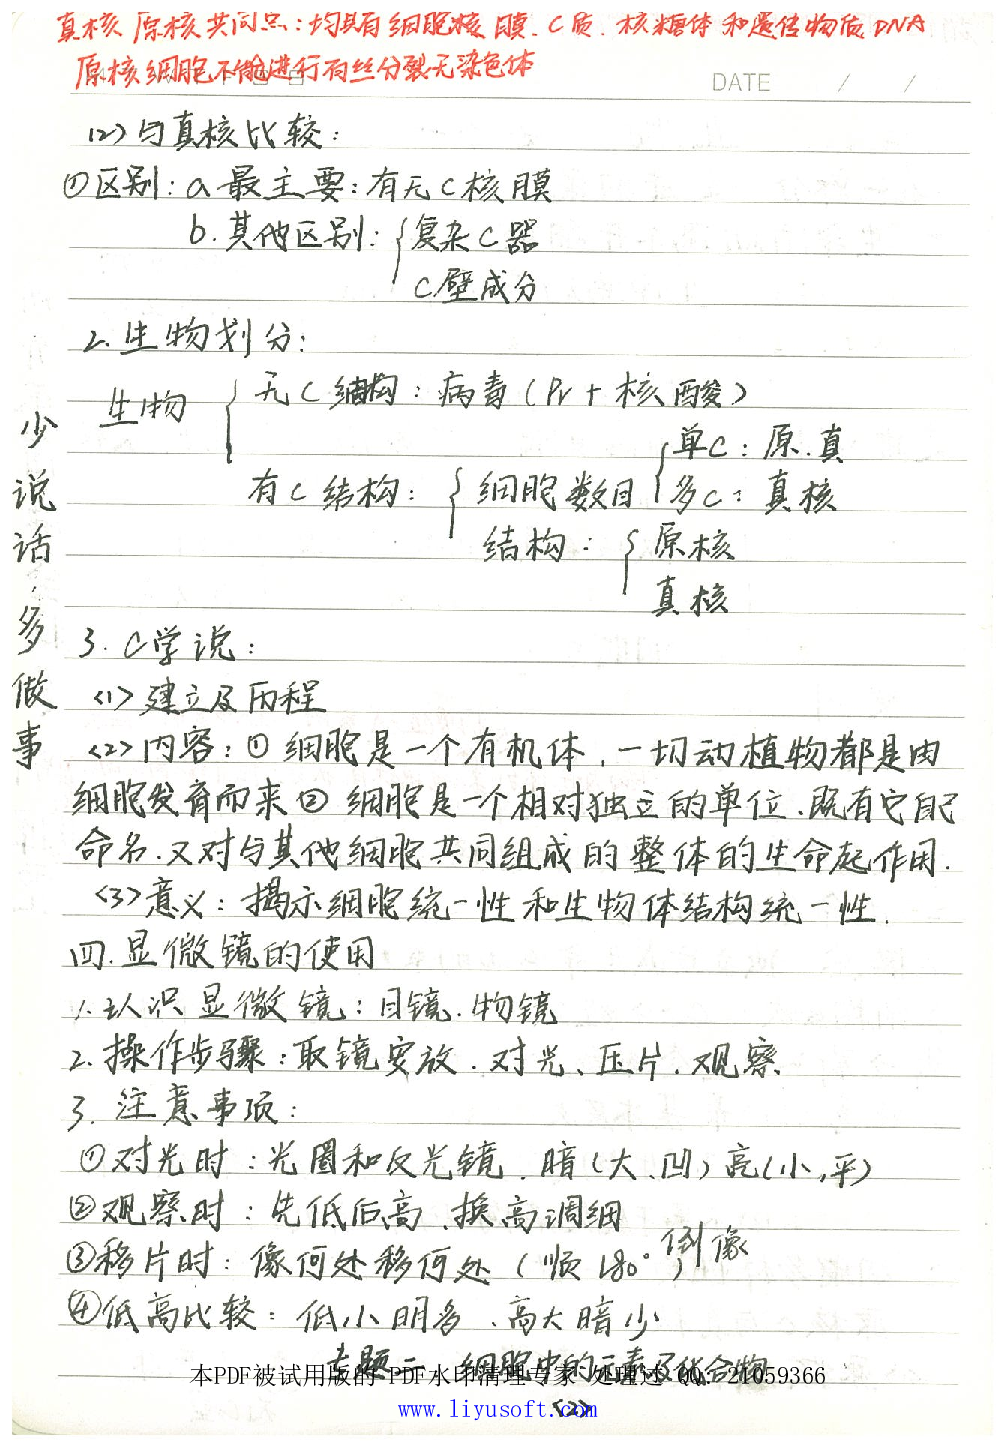 真核 原核共同点：均具有细胞核膜、C质、核糖体和遗传物质DNA
原核细胞不能进行有丝分裂无染色体
DATE / /
(2)与真核比较：
①区别：a最主要：有无C核膜
b.其他区别：{复杂C器
C壁成分
2.生物划分：
生物 {无C结构：病毒(Pr+核酸)
单C：原.真
有C结构：{细胞数目{多C：真核
结构：{原核
真核
少说话，多做事
3.C学说：
<1>建立及历程
<2>内容：①细胞是一个有机体，一切动植物都是由
细胞发育而来②细胞是一个相对独立的单位、既有它自己
命名.又对与其他细胞共同组成的整体的生命起作用.
<3>意义：揭示细胞统一性和生物体结构统一性.
四.显微镜的使用
1.认识显微镜：目镜.物镜
2.操作步骤：取镜安放.对光、压片.观察
3.注意事项：
①对光时：光圈和反光镜.暗(大、凹)亮(小,平)
②观察时：先低后高、换高调细
③移片时：像何处移何处(顺180°)倒像
④低高比较：低小明多、高大暗少
专题二 细胞中的元素及化合物
本PDF被试用版的 PDF水印清理专家 处理过 QQ: 21059366
www.liyusoft.com
<2>